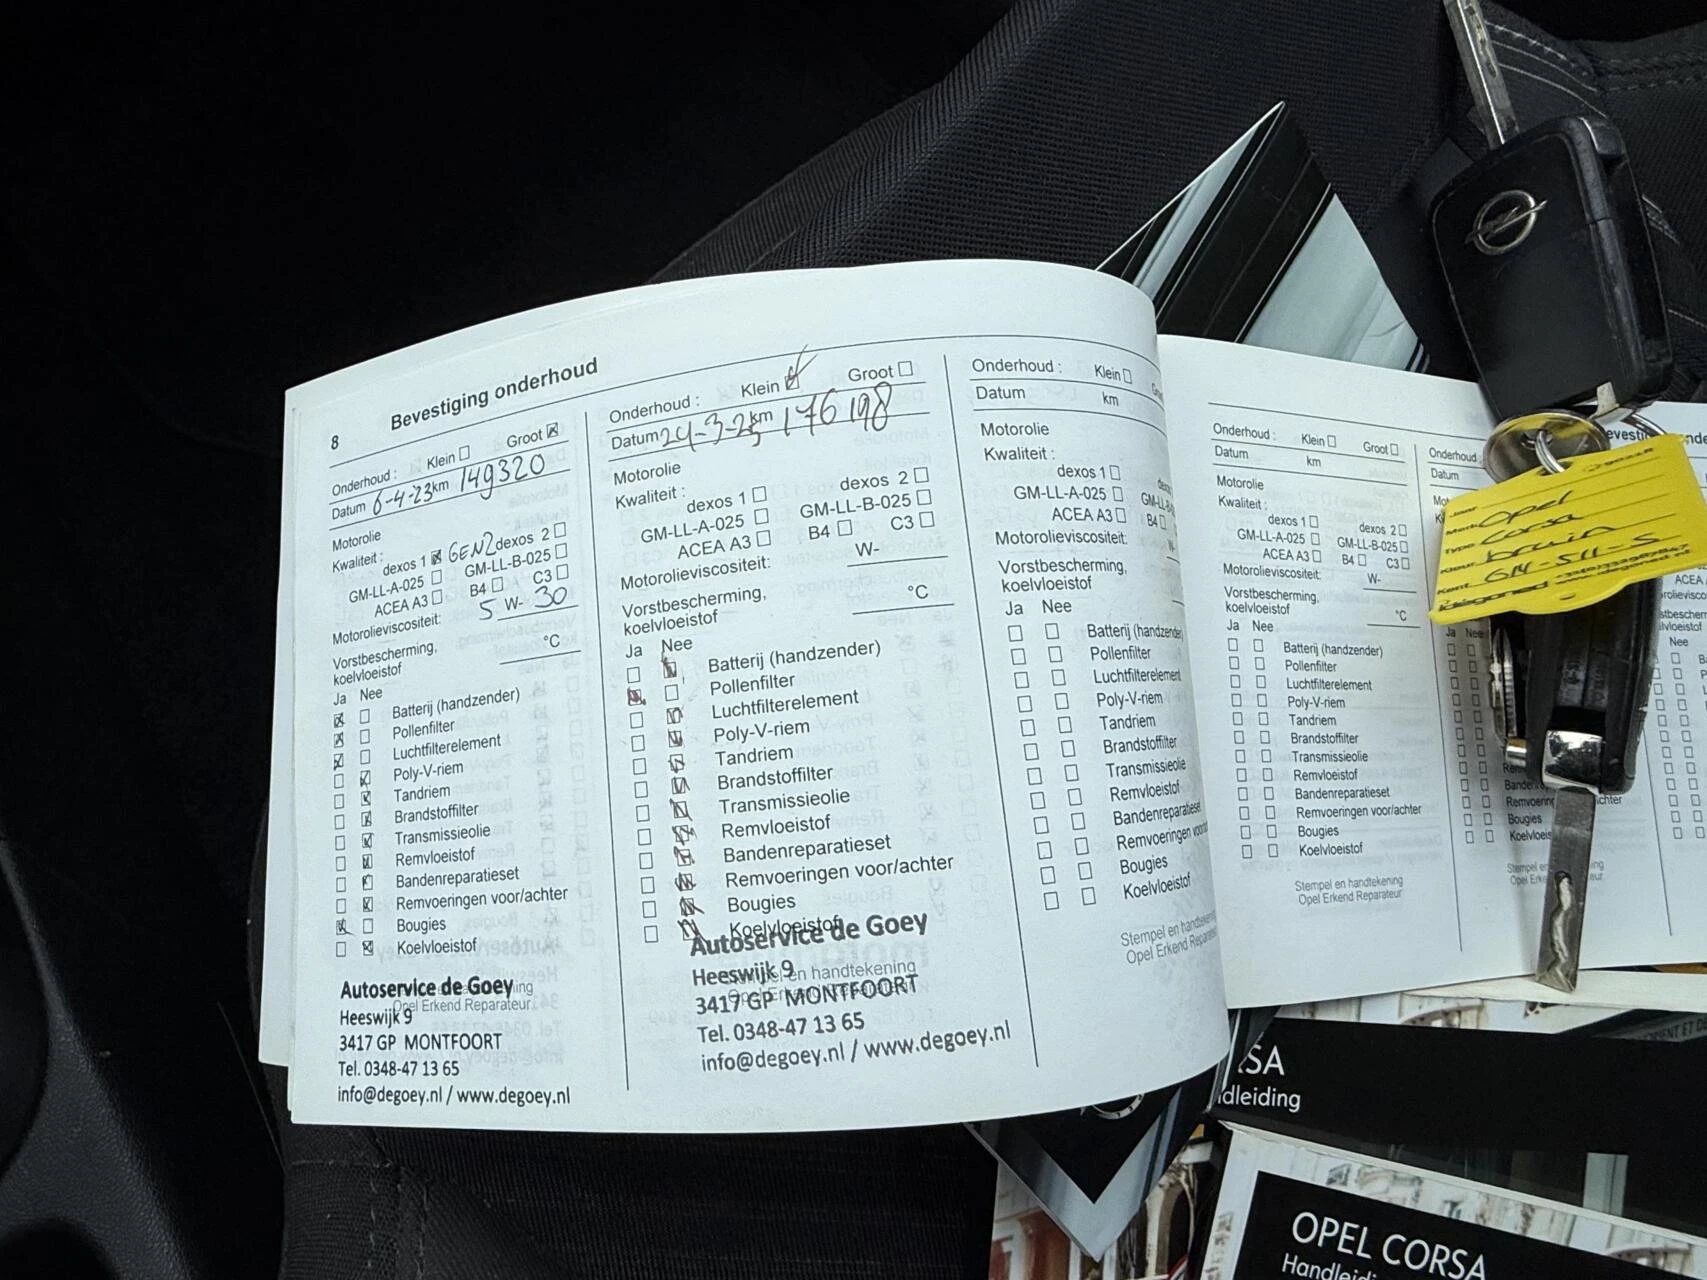 8
Bevestiging onderhoud
Onderhoud : Klein Groot
Datum 6-4-23 km 149320
Motorolie
Kwaliteit : dexos 1 GEN2 dexos 2
GM-LL-A-025 GM-LL-B-025
ACEA A3 B4 C3
Motorolieviscositeit: 5 W- 30
Vorstbescherming,
koelvloeistof °C
Ja Nee
Batterij (handzender)
Pollenfilter
Luchtfilterelement
Poly-V-riem
Tandriem
Brandstoffilter
Transmissieolie
Remvloeistof
Bandenreparatieset
Remvoeringen voor/achter
Bougies
Koelvloeistof
Autoservice de Goey
Opel Erkend Reparateur
Heeswijk 9
3417 GP MONTFOORT
Tel. 0348-47 13 65
info@degoey.nl / www.degoey.nl
Onderhoud : Klein Groot
Datum 24-3-25 km 176198
Motorolie
Kwaliteit :
dexos 1 dexos 2
GM-LL-A-025 GM-LL-B-025
ACEA A3 B4 C3
Motorolieviscositeit: W-
Vorstbescherming,
koelvloeistof °C
Ja Nee
Batterij (handzender)
Pollenfilter
Luchtfilterelement
Poly-V-riem
Tandriem
Brandstoffilter
Transmissieolie
Remvloeistof
Bandenreparatieset
Remvoeringen voor/achter
Bougies
Koelvloeistof
Autoservice de Goey
Heeswijk 9
en handtekening
3417 GP MONTFOORT
Tel. 0348-47 13 65
info@degoey.nl / www.degoey.nl
Onderhoud : Klein
Datum km
Motorolie
Kwaliteit :
dexos 1
GM-LL-A-025
ACEA A3 B4
Motorolieviscositeit:
Vorstbescherming,
koelvloeistof
Ja Nee
Batterij (handzender)
Pollenfilter
Luchtfilterelement
Poly-V-riem
Tandriem
Brandstoffilter
Transmissieolie
Remvloeistof
Bandenreparatieset
Remvoeringen
Bougies
Koelvloeistof
Stempel en handtekening
Opel Erkend
Onderhoud : Klein Groot
Datum km
Motorolie
Kwaliteit :
dexos 1 dexos 2
GM-LL-A-025 GM-LL-B-025
ACEA A3 B4 C3
Motorolieviscositeit: W-
Vorstbescherming,
koelvloeistof °C
Ja Nee
Batterij (handzender)
Pollenfilter
Luchtfilterelement
Poly-V-riem
Tandriem
Brandstoffilter
Transmissieolie
Remvloeistof
Bandenreparatieset
Remvoeringen voor/achter
Bougies
Koelvloeistof
Stempel en handtekening
Opel Erkend Reparateur
Onderhoud
Datum
Ja Nee
Bougies
Nee
Opel
Type Corsa
Kleur bruin
Kent. G14-511-S
SA
dleiding
OPEL CORSA